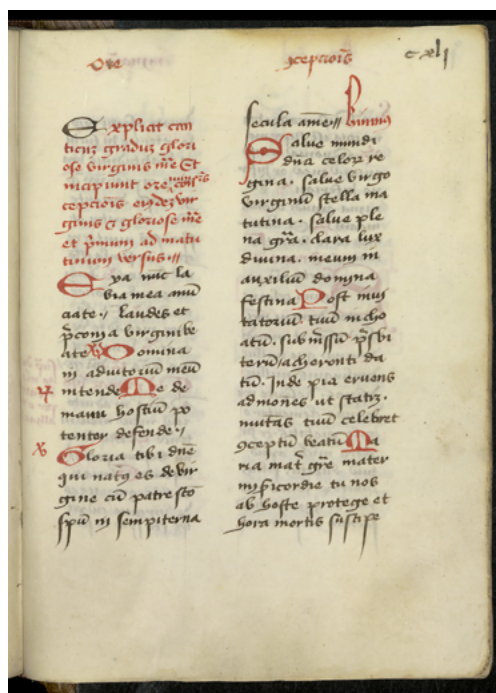 Ore ꝯcepciois cxli
Explicit can
ticuʒ graduʒ glori
ose virginis m̄ie Et
incipiunt ore
cepciois eiusdeʒ vir
ginis et gloriose m̄ie
et p̄mum ad matu
tinum versus
Eya nūc la
bia mea anū
ciate laudes et
p̄conia virginis be
ate Domina
in adiutoriū meū
intende Me de
manu hostiū po
tenter defende
Gloria tibi dn̄e
qui natꝯ es de vir
gine cū patre scō
spū in sempiterna
secula amē
Salue mundi
dn̄a celoꝝ re
gina. salue virgo
virginū stella ma
tutina. salue ple
na grā. clara lux
diuina. meum in
auxiliū domina
festina Post inui
tatoriū tuū incho
atū. sub missū p̄sbi
terū acheronti da
tū. Inde pia eruens
admones ut statiʒ.
inuitās tuū celebret
ꝯceptū beatū Ma
ria mat̄ grē mater
misericordie tu nos
ab hoste protege et
hora mortis suscipe